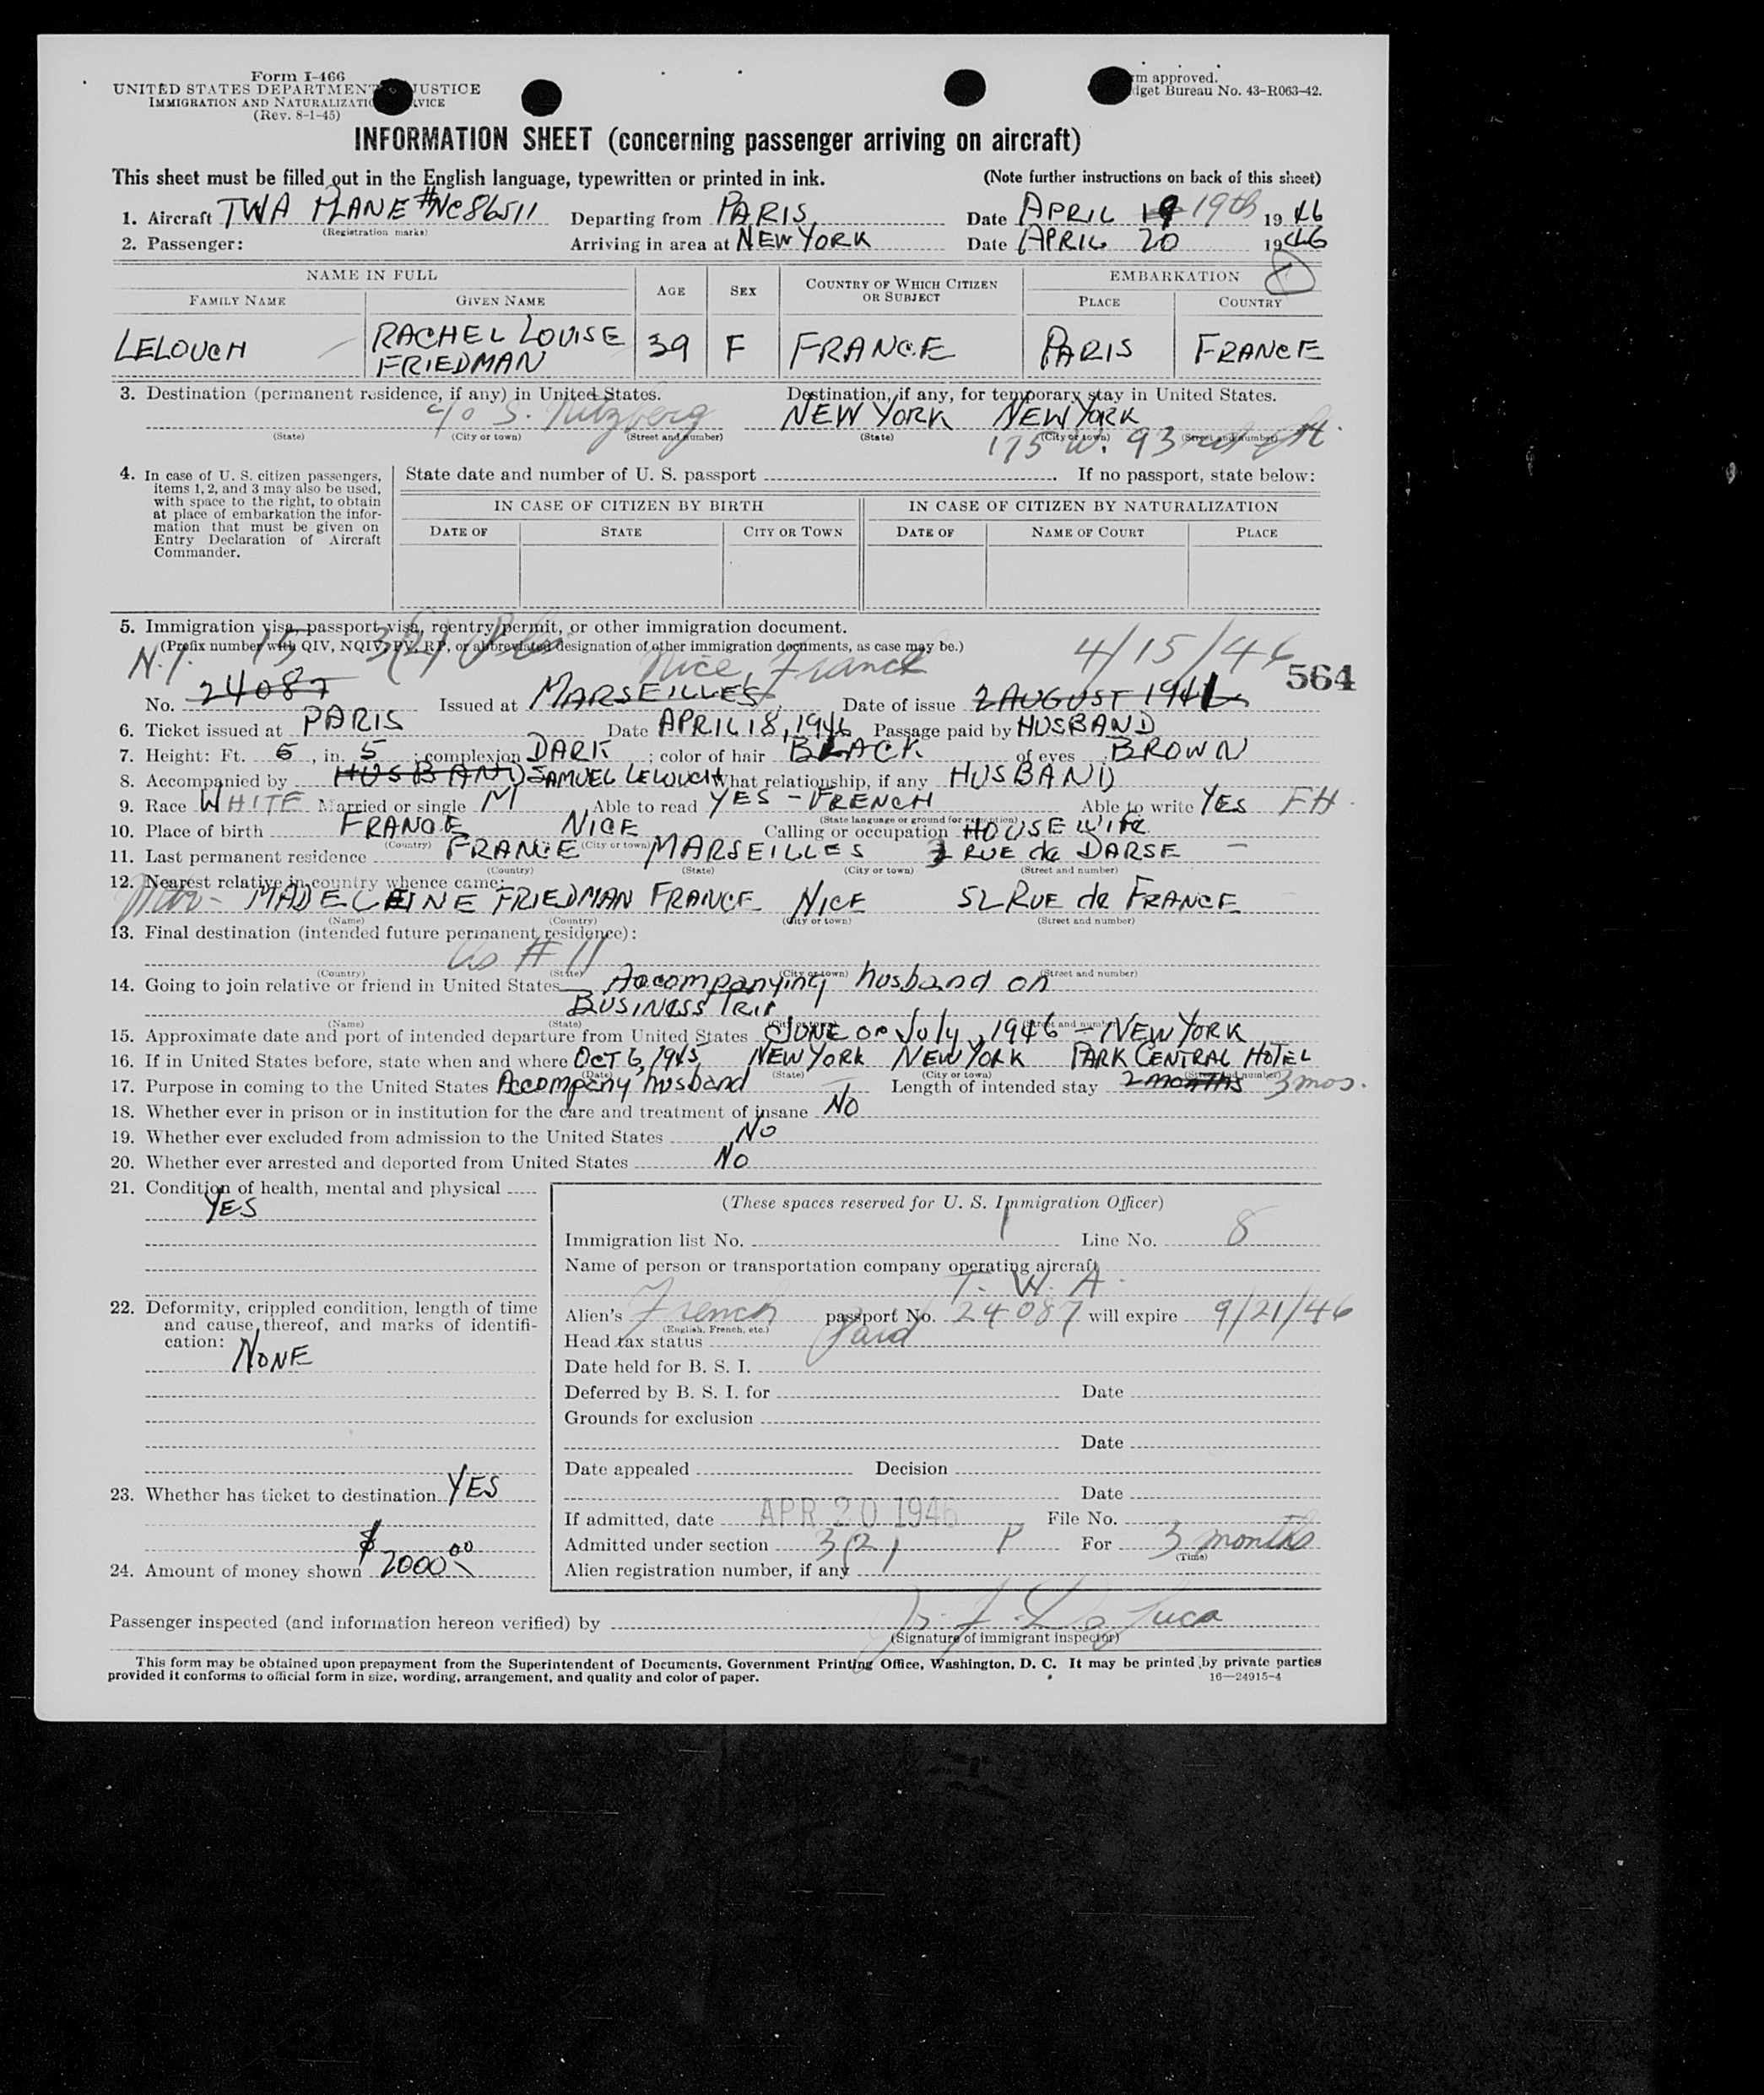 Form I-466
UNITED STATES DEPARTMENT JUSTICE
IMMIGRATION AND NATURALIZATION
(Rev. 8-1-45)
approved.
Bureau No. 43-R063-42.
INFORMATION SHEET (concerning passenger arriving on aircraft)
This sheet must be filled out in the English language, typewritten or printed in ink. (Note further instructions on back of this sheet)
1. Aircraft TWA PLANE #NC86511 Departing from PARIS Date APRIL 19 19th 1946
(Registration marks)
2. Passenger: Arriving in area at NEW YORK Date APRIL 20 1946
NAME IN FULL AGE SEX COUNTRY OF WHICH CITIZEN OR SUBJECT EMBARKATION
FAMILY NAME GIVEN NAME PLACE COUNTRY
LELOUCH RACHEL LOUISE FRIEDMAN 39 F FRANCE PARIS FRANCE
3. Destination (permanent residence, if any) in United States. Destination, if any, for temporary stay in United States.
c/o S. NEW YORK NEW YORK
(State) (City or town) (Street and number) (State) (City or town) (Street and number)
175 W. 93rd St.
4. In case of U. S. citizen passengers, items 1, 2, and 3 may also be used, with space to the right, to obtain at place of embarkation the information that must be given on Entry Declaration of Aircraft Commander.
State date and number of U. S. passport If no passport, state below:
IN CASE OF CITIZEN BY BIRTH IN CASE OF CITIZEN BY NATURALIZATION
DATE OF STATE CITY OR TOWN DATE OF NAME OF COURT PLACE
5. Immigration visa, passport visa, reentry permit, or other immigration document.
(Prefix number with QIV, NQIV, PV, RP, or abbreviated designation of other immigration documents, as case may be.)
15 3(2) Nice, France 4/15/46
564
No. 24087 Issued at MARSEILLES Date of issue 2 AUGUST 1941
6. Ticket issued at PARIS Date APRIL 18, 1946 Passage paid by HUSBAND
7. Height: Ft. 5, in. 5; complexion DARK; color of hair BLACK of eyes BROWN
8. Accompanied by HUSBAND SAMUEL LELOUCH What relationship, if any HUSBAND
9. Race WHITE Married or single M Able to read YES - FRENCH Able to write YES FH
(State language or ground for exemption)
10. Place of birth FRANCE NICE Calling or occupation HOUSEWIFE
(Country) (City or town)
11. Last permanent residence FRANCE MARSEILLES 2 RUE de DARSE
(Country) (State) (City or town) (Street and number)
12. Nearest relative in country whence came:
MADELEINE FRIEDMAN FRANCE NICE 52 RUE de FRANCE
(Name) (Country) (City or town) (Street and number)
13. Final destination (intended future permanent residence):
As # 11
(Country) (State) (City or town) (Street and number)
14. Going to join relative or friend in United States Accompanying husband on
BUSINESS TRIP
(Name) (State) (City or town) (Street and number)
15. Approximate date and port of intended departure from United States JUNE or July, 1946 - NEW YORK
16. If in United States before, state when and where OCT 6, 1945, NEW YORK NEW YORK PARK CENTRAL HOTEL
(Date) (State) (City or town) (Street and number)
17. Purpose in coming to the United States Accompany husband Length of intended stay 2 MONTHS 3 mos.
18. Whether ever in prison or in institution for the care and treatment of insane NO
19. Whether ever excluded from admission to the United States NO
20. Whether ever arrested and deported from United States NO
21. Condition of health, mental and physical
YES
22. Deformity, crippled condition, length of time and cause thereof, and marks of identification:
NONE
23. Whether has ticket to destination YES
24. Amount of money shown $2000.00
(These spaces reserved for U. S. Immigration Officer)
Immigration list No. 1 Line No. 8
Name of person or transportation company operating aircraft
T. W. A.
Alien's French passport No. 24087 will expire 9/21/46
(English, French, etc.)
Head tax status Paid
Date held for B. S. I.
Deferred by B. S. I. for Date
Grounds for exclusion
Date
Date appealed Decision
Date
If admitted, date APR 20 1946 File No.
Admitted under section 3(2) P For 3 months
(Time)
Alien registration number, if any
Passenger inspected (and information hereon verified) by
(Signature of immigrant inspector)
This form may be obtained upon prepayment from the Superintendent of Documents, Government Printing Office, Washington, D. C. It may be printed by private parties
provided it conforms to official form in size, wording, arrangement, and quality and color of paper. 16—24915-4